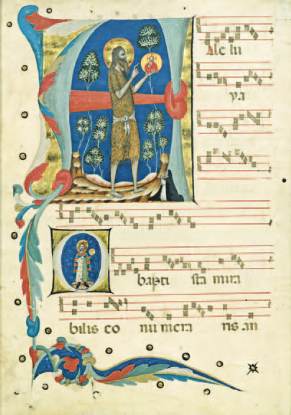 Alle lu
ya
bapti sta mira
bilis co nu mera ris an